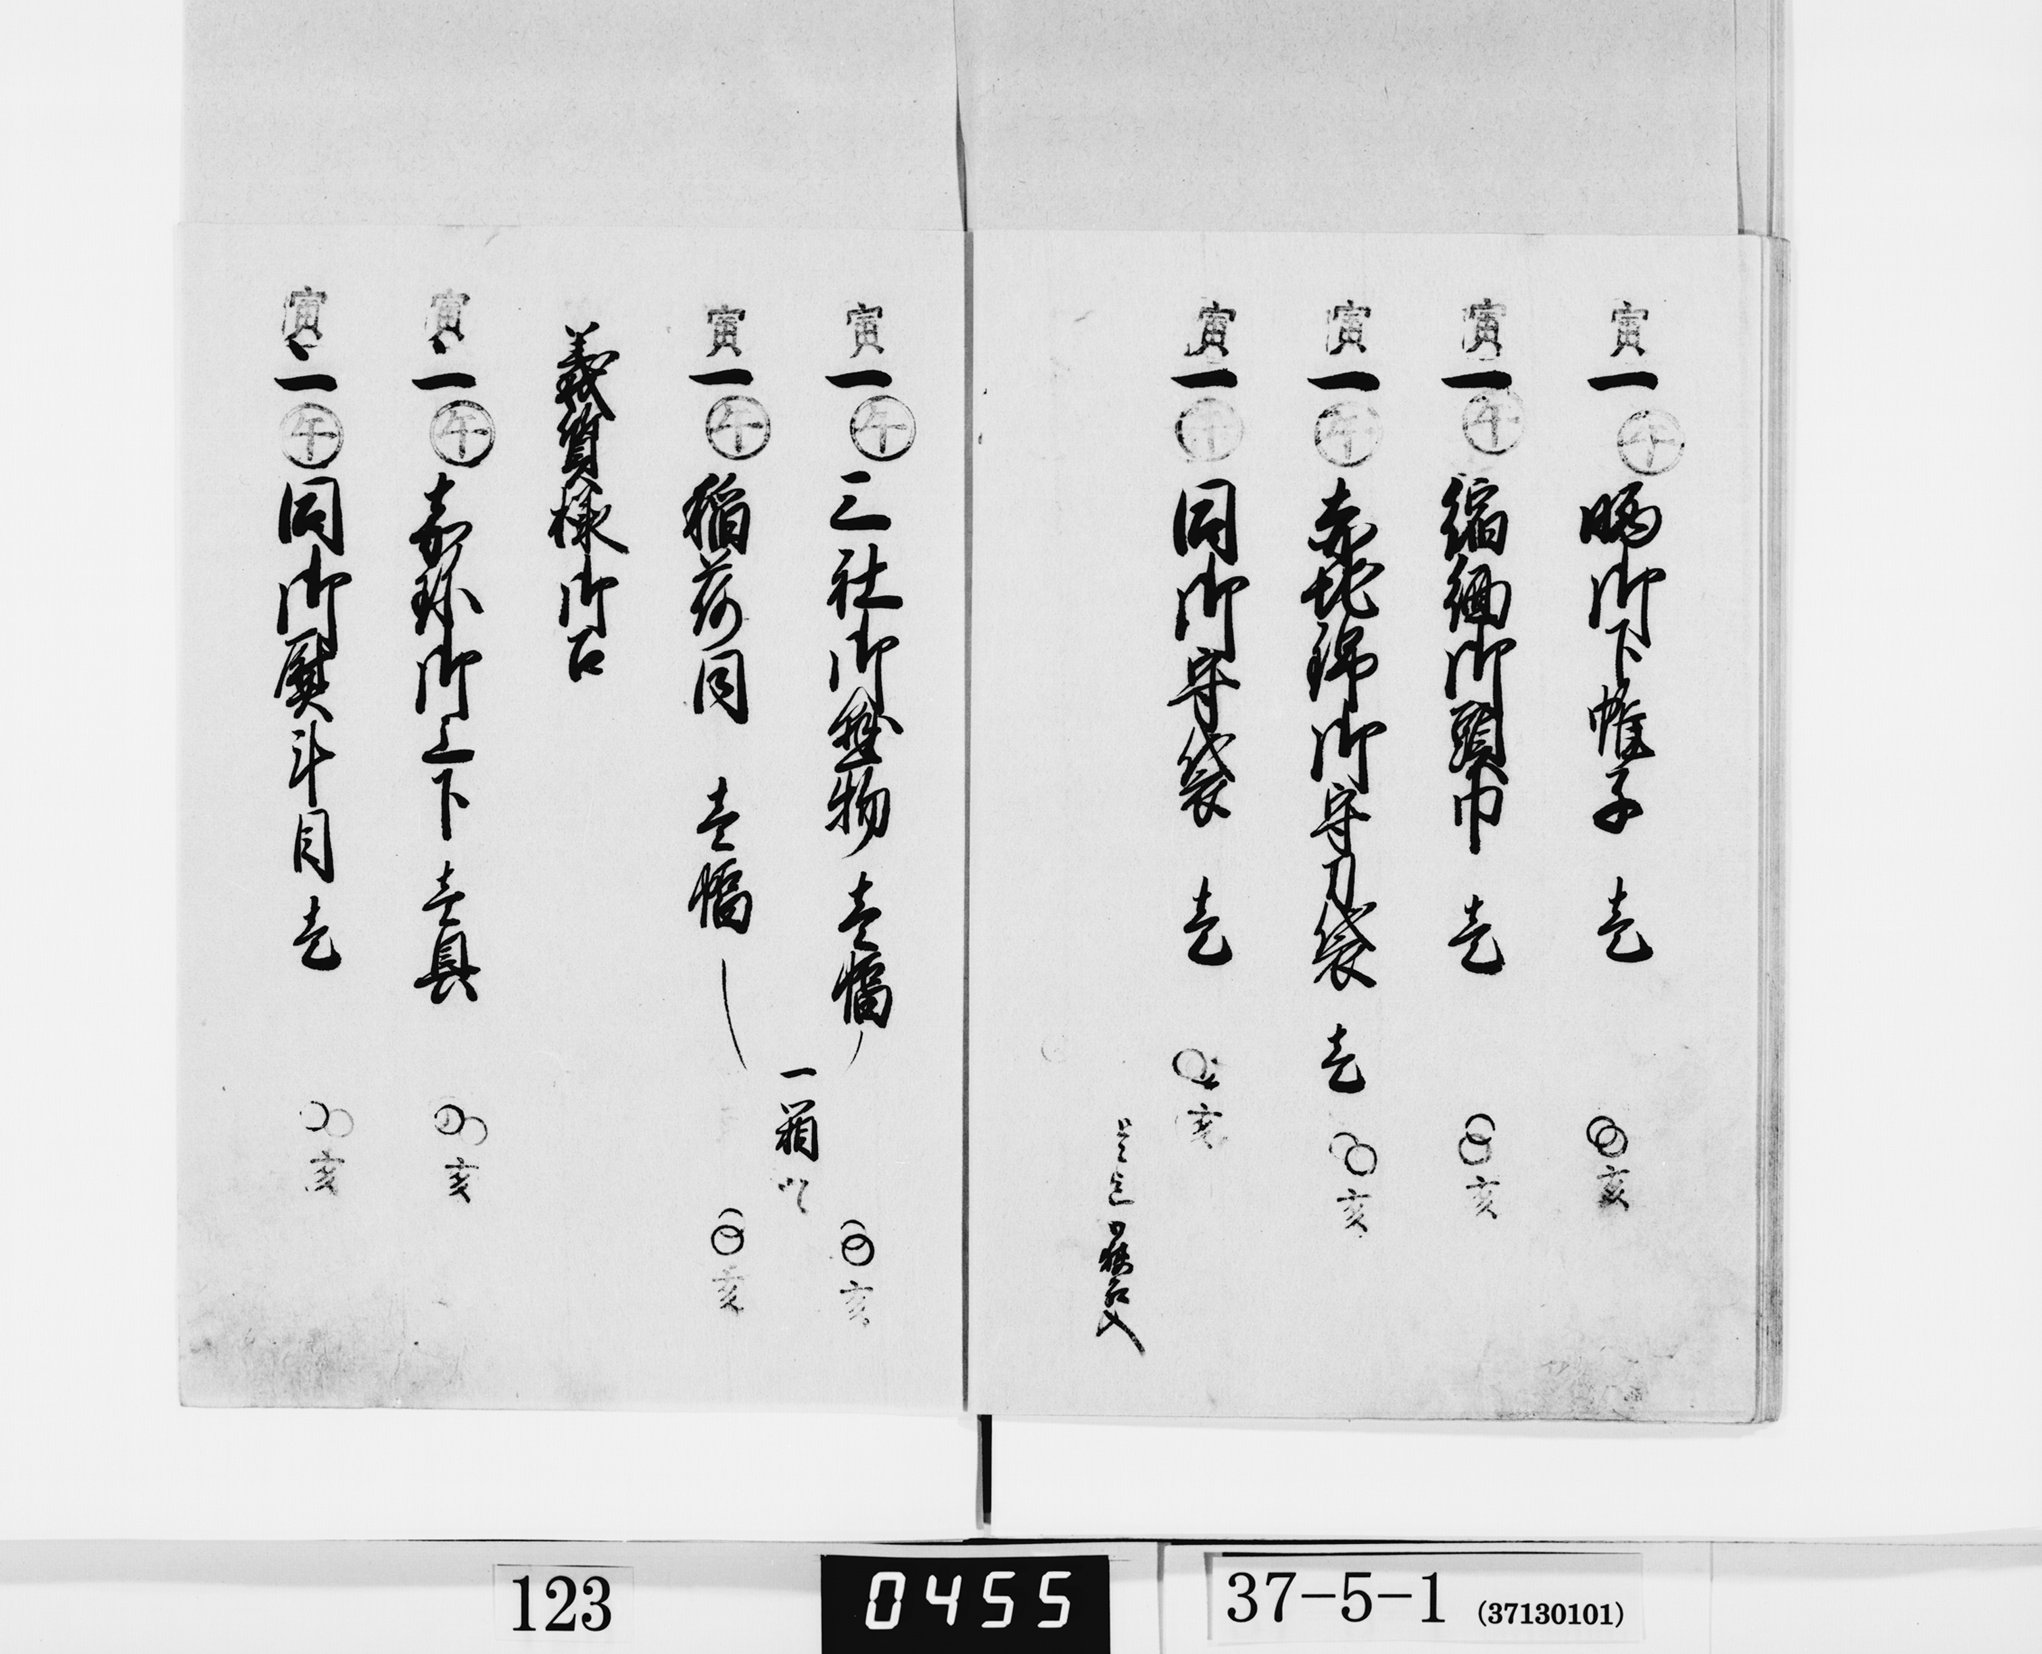 寅一午晒御下帷子 壱 亥
寅一午縮緬御頭巾 壱 亥
寅一午赤地錦御守刀袋 壱 亥
寅一午同御守袋 壱 亥
是迄
寅一午三社御懸物 壱幅 亥
一箱
寅一午稲荷同 壱幅 亥
義質様御召
寅一午嘉珎御上下 壱具 亥
寅一午同御熨斗目 壱 亥
123
0455
37-5-1 (37130101)